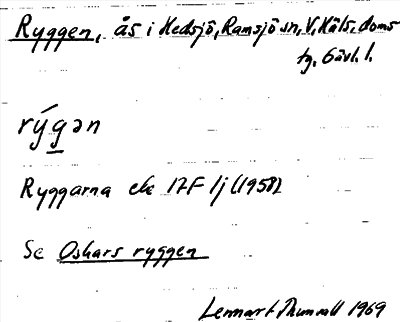 Ryggen, ås i Hedsjö, Ramsjö sn, V. Häls. doms
tg, Gävl. l.
rýgən
Ryggarna ek 17F Ij (1958)
Se Oskars ryggen
Lennart Thunvall 1969